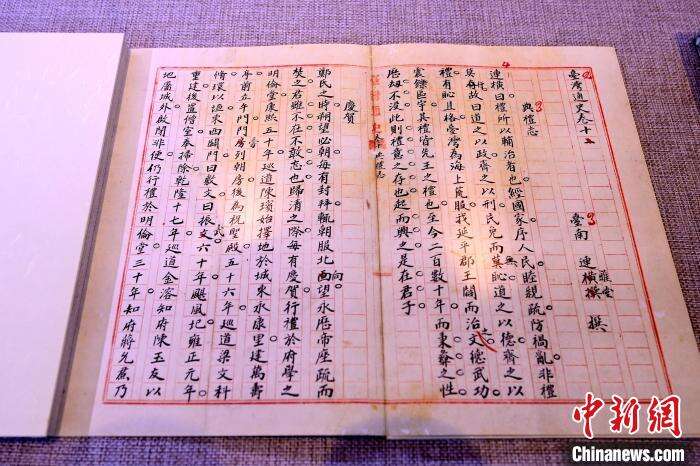 臺灣通史卷十
臺南 連橫 雅堂 撰
典禮志
連橫曰禮所以輔治者也經國家序人民睦親疏防禍亂非禮
莫故曰道之以政齊之以刑民免而無恥道之以德齊之以
禮有恥且格臺灣為海上荒服我延平郡王闢而治之文德武功
震鑠區宇其禮皆先王之禮也至今二百數十年而秉彝之性
歷劫不沒此則禮意之存也起而興之是在君子
典禮志
慶賀
鄭氏之時朔望必朝每有封拜輒朝服北向望永曆帝座疏而
焚之君雖不在不敢忘也歸清之際每有慶賀行禮於府學之
明倫堂康熙五十年巡道陳璸始擇地於城東永康里建萬壽
前立午門門房列朝房後為祝聖殿五十六年巡道梁文科
脩環以垣東西闢門曰敷文曰振武六十年颶風圮雍正元年
重建後置僧室奉掃除乾隆十七年巡道金溶知府陳玉友以
地處城外啟閉非便仍行禮於明倫堂三十年知府蔣允焄乃
中新网
Chinanews.com